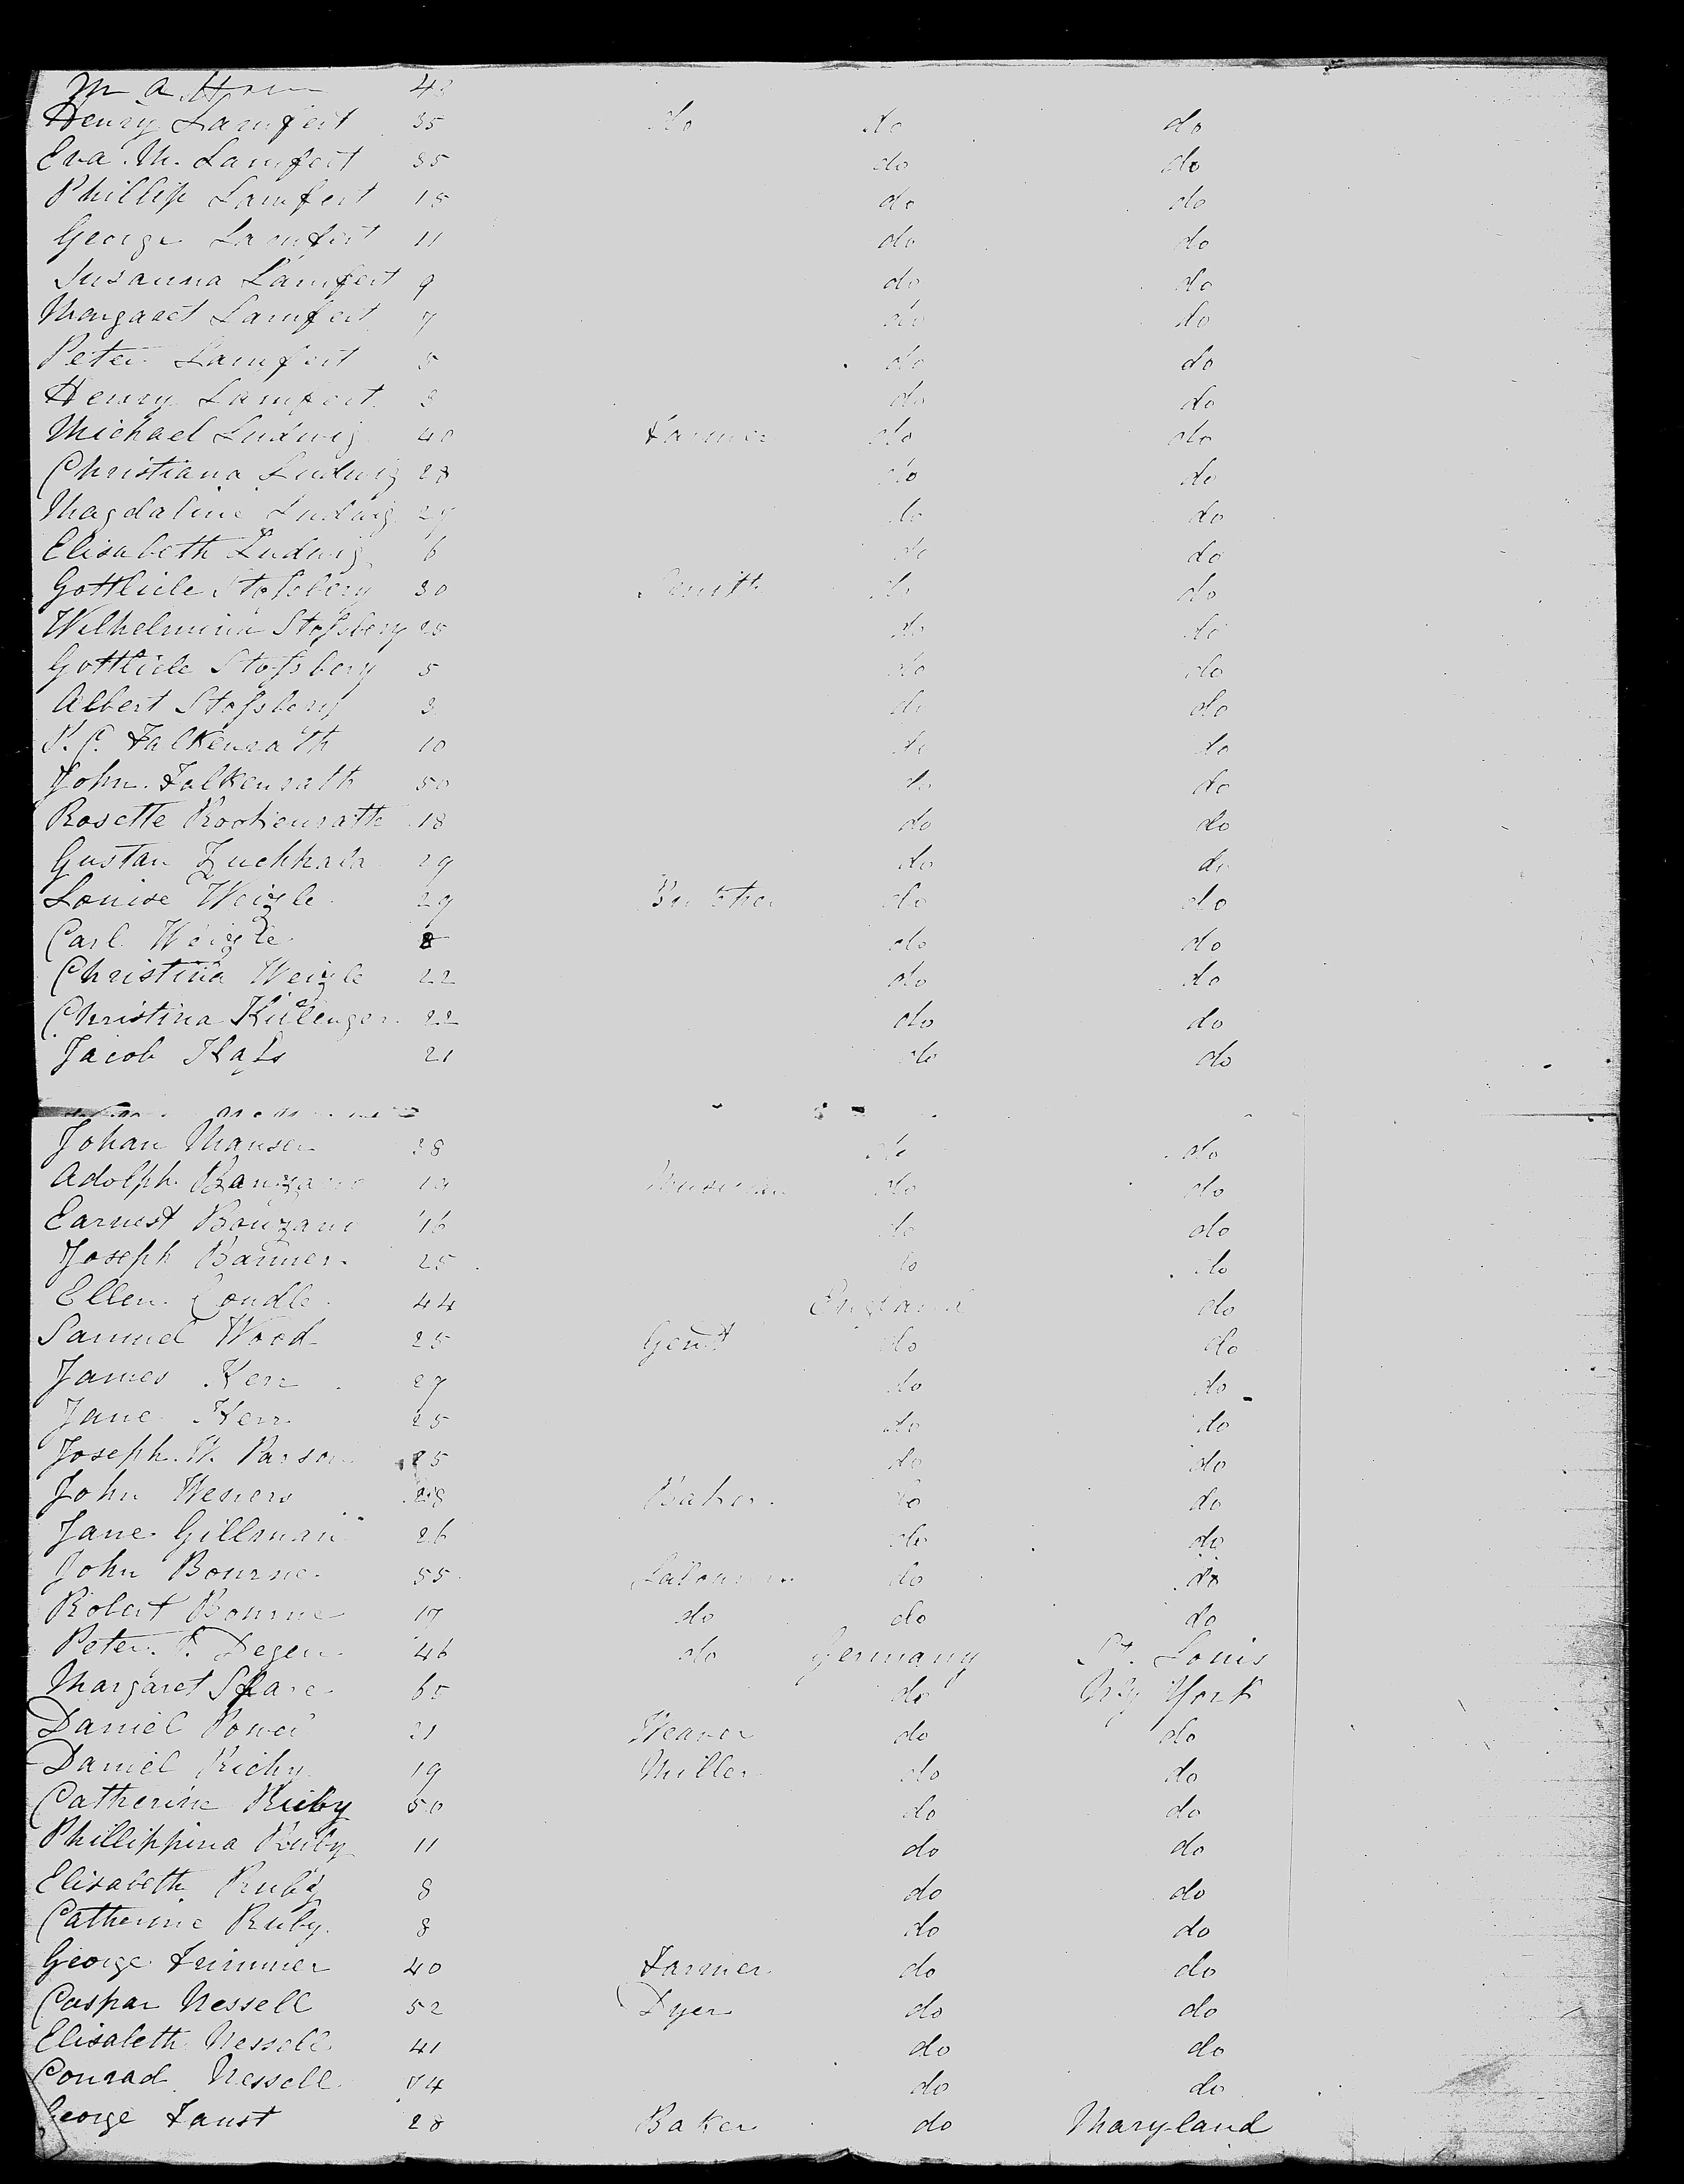 M A 43
Henry Lamfert 35 do do do
Eva M. Lamfert 35 do do
Phillip Lamfert 15 do do
George Lamfert 11 do do
Susanna Lamfert 9 do do
Margaret Lamfert 7 do do
Peter Lamfert 5 do do
Henry Lamfert 3 do do
Michael Ludwig 40 Farmer do do
Christiana Ludwig 28 do do
Magdaline Ludwig 27 do do
Elisabeth Ludwig 6 do do
Gottliele Stofsberg 30 Smith do do
Wilhelmina Stofsberg 25 do do
Gottliele Stofsberg 5 do do
Albert Stofsberg 3 do do
P. C. Falkenrath 10 do do
John Falkenrath 50 do do
Rosette 18 do do
Gustav 29 do do
Louise Weigle 29 Butcher do do
Carl Weigle 8 do do
Christina Weigle 22 do do
Christina 22 do do
Jacob 21 do do
Johan Mansen 38 do do
Adolph 19 Musician do do
Earnest Bouzano 16 do do
Joseph Banner 25 do do
Ellen Condle 44 England do
Samuel Wood 25 Gent do do
James Kerr 27 do do
Jane Kerr 25 do do
Joseph W. Parson 25 do do
John 28 Baker do do
Jane Gillman 26 do do
John Bourne 55 Labourer do do
Robert Bourne 17 do do do
Peter F. Degen 46 do Germany St. Louis
Margaret 65 do N. York
Daniel 21 Weaver do do
Daniel 19 Miller do do
Catherine Ruby 50 do do
Phillippina Ruby 11 do do
Elisabeth Ruby 8 do do
Catherine Ruby 8 do do
George Trimmer 40 Farmer do do
Caspar Nessell 52 Dyer do do
Elisabeth Nessell 41 do do
Conrad Nessell 14 do do
George Faust 28 Baker do Maryland